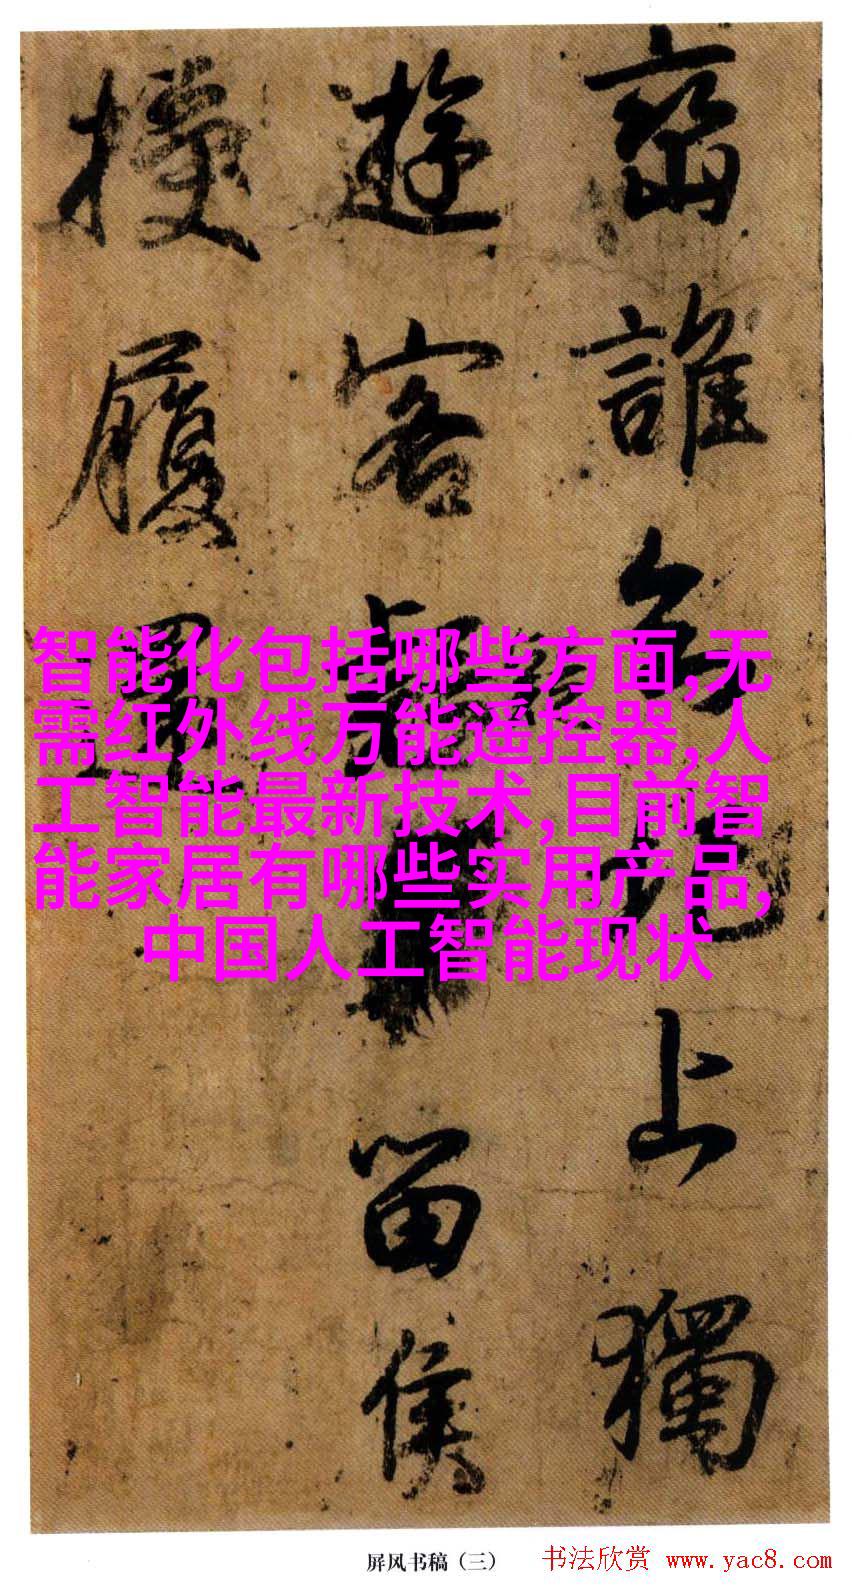 峦誰上獨
遊客留侯
履
智能化包括哪些方面,无
需红外线万能遥控器,人
工智能最新技术,目前智
能家居有哪些实用产品,
中国人工智能现状
屏风书稿（三）
书法欣赏 www.yac8.com